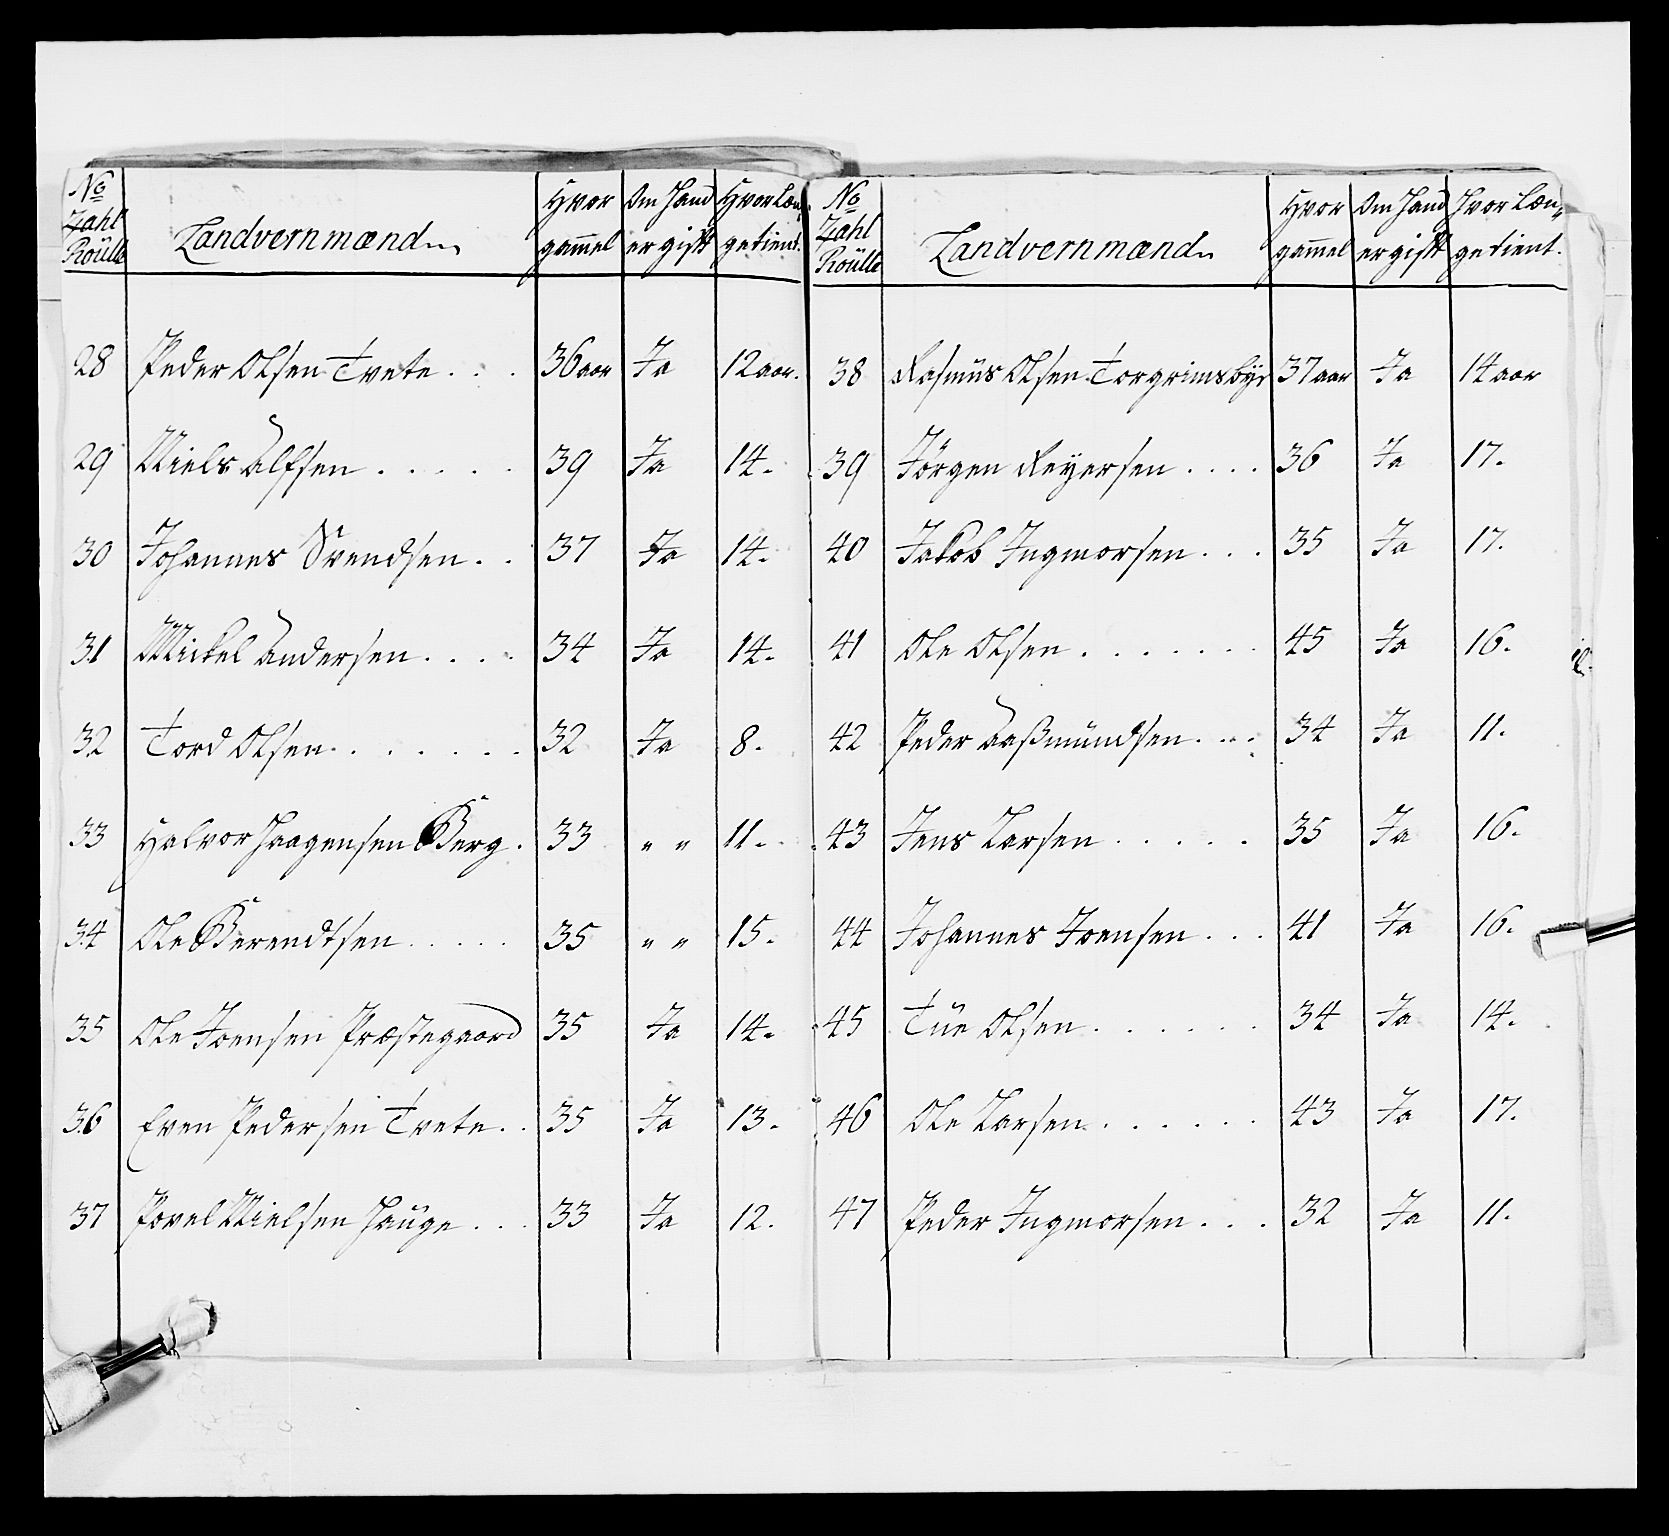 No Zahl Roülle | Landvernmænden | Hvor gammel | Om Hand er gift | Hvor Læn, getient.
28 Peder Olsen Tvete . . . 36 aar Ja 12 aar.
29 Niels Alfsen . . . . . 39 Ja 14.
30 Johannes Svendsen . . 37 Ja 14.
31 Mickel Andersen . . . . 34 Ja 14.
32 Tord Olsen . . . . . . . 32 Ja 8.
33 Halvor Haagensen Berg . 33 " " 11.
34 Ole Berendtsen . . . . . 35 " " 15.
35 Ole Joensen Præstegaard 35 Ja 14.
36 Even Pedersen Tvete . . 35 Ja 13.
37 Povel Nielsen Hauge . . . 33 Ja 12.
No Zahl Roülle | Landvernmænden | Hvor gammel | Om Hand er gift | Hvor Læn, getient.
38 Rasmüs Olsen Torgrimsbye 37 aar Ja 14 aar
39 Jörgen Reyersen . . . . 36 Ja 17.
40 Jakob Ingmorsen . . . 35 Ja 17.
41 Ole Olsen . . . . . . . 45 Ja 16.
42 Peder Aaßmündsen . . . . 34 Ja 11.
43 Jens Larsen . . . . . 35 Ja 16.
44 Johannes Joensen . . . 41 Ja 16.
45 Tüe Olsen . . . . . . 34 Ja 14.
46 Ole Larsen . . . . . . 43 Ja 17.
47 Peder Ingmorsen . . . 32 Ja 11.